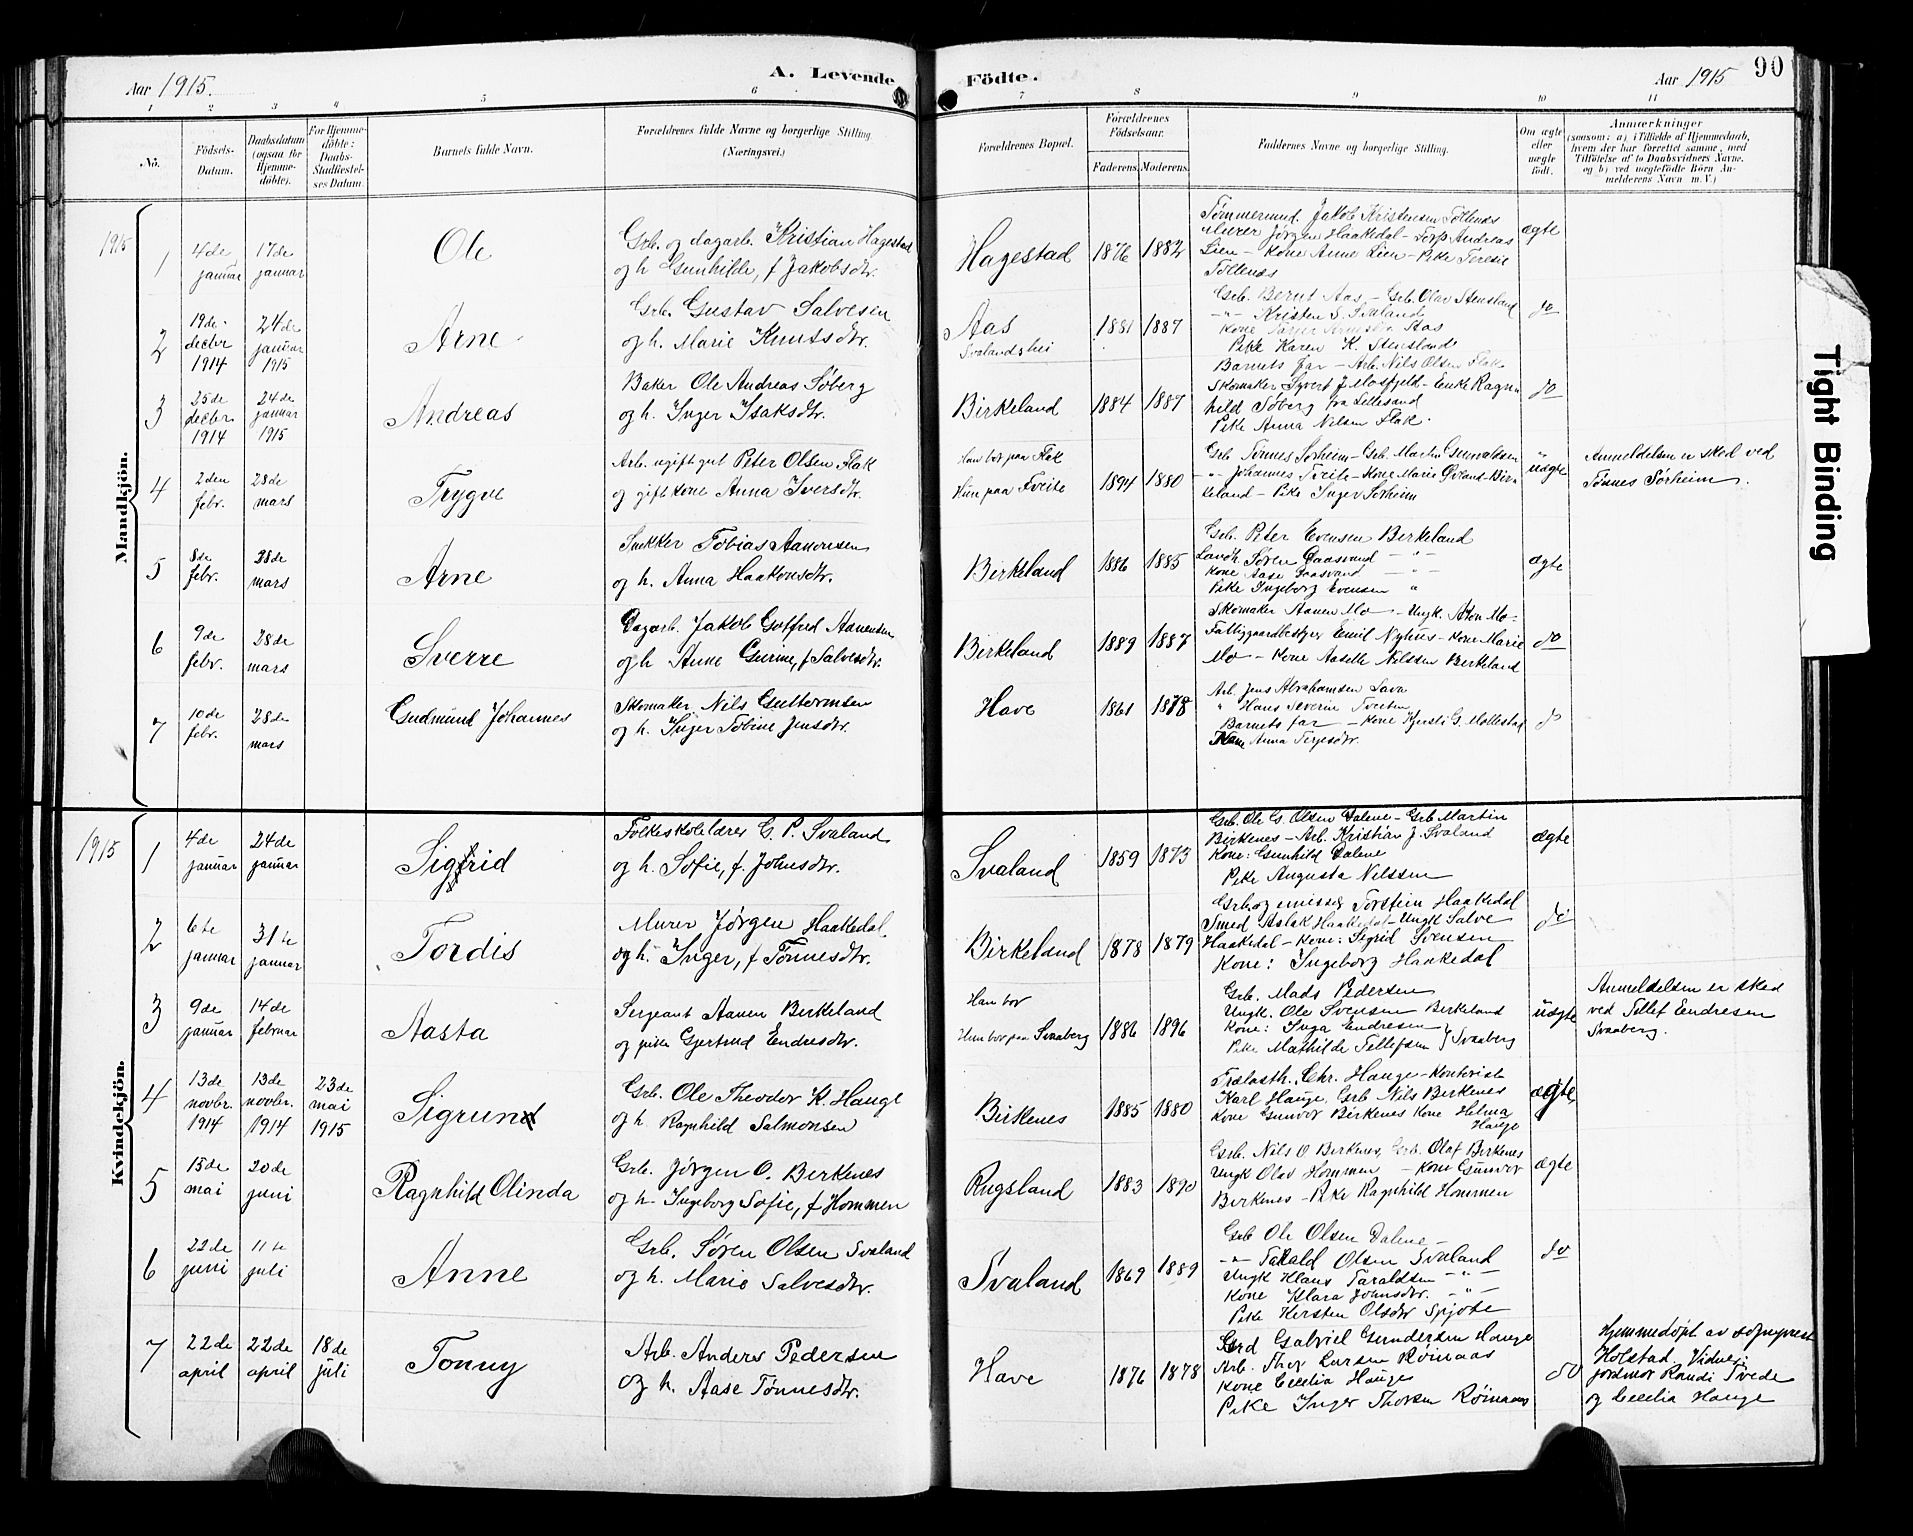 Aar 1915.
A. Levende
Födte.
Aar 1915
90
1 2 3 4 5 6 7 8 9 10 11
No.
Födsels-
Datum.
Daabsdatum
(ogsaa for
Hjemme-
döbte).
For Hjemme-
döbte:
Daabs-
Stadfæstel-
ses Datum.
Barnets fulde Navn.
Forældrenes fulde Navne og borgerlige Stilling
(Næringsvei.)
Forældrenes Bopæl.
Forældrenes
Födselsaar.
Faderens. Moderens.
Faddernes Navne og borgerlige Stilling.
Om ægte
eller
uægte
födt.
Anmærkninger
(saasom: a) i Tilfælde af Hjemmedaab,
hvem der har forrettet samme, med
Tilföielse af to Daabsvidners Navne.
og b) ved uægtefödte Börn An-
melderens Navn m.V.)
Mandkjön.
1915
1
4de
januar
17de
januar
Ole
Grb. og dagarb. Kristian Hagestad
og h Gunhilde, f Jakobsdtr.
Hagestad
1876 1882
Tømmermd. Jakob Kristensen Tollenæs
Murer Jørgen Haakedal - Torp Andreas
Lien - Kone Anne Lien - Pike Teresie
Tollenæs
ægte
2
19de
decbr
1914
24de
januar
1915
Arne
Grb. Gustav Salvesen
og h. Marie Knutsdtr.
Aas
Svalandshei
1881 1887
Grb. Bernt Aas - Grb. Olav Stensland
-"- Kristen S. Svaland
Kone Aas
Pike Karen K. Stensland
do
3
25de
decbr
1914
24de
januar
1915
Andreas
Baker Ole Andreas Söberg
og h. Inger Isaksdtr.
Birkeland
1884 1887
Barnets far - Arb. Nils Olsen Flak
Skomaker Syvert J. Mosfjeld - Enke Ragn-
hild Söberg fra Lillesand
Pike Anna Nilsen Flak.
do
4
2den
febr.
28de
mars
Trygve
Arb. ugift gut Peter Olsen Flak
og gift kone Anna Iversdtr.
Han bor paa Flak
Hun paa Tveite
1894 1880
Grb Tønnes Sørheim - Grb. Martin Gunvaldsen
-"- Johannes Tveite - Kone Marie Øvland - Birk
keland - Pike Inger Sørheim
"
uægte
Anmeldelsen er sked ved
Tönnes Sørheim.
5
8de
febr.
28de
mars
Arne
Snekker Tobias Aanonsen
og h. Anna Haakonsdtr.
Birkeland
1886 1885
Grb. Peter Evensen Birkeland
Landh. Søren Gaasvand - " -
Kone Aase Gaasvand - " -
Pike Ingeborg Evensen "
ægte
6
9de
febr.
28de
mars
Sverre
Dagarb. Jakob Gotfred Aanensen
og h Anne Gurine, f Salvesdtr.
Birkeland
1889 1887
Skomaker Aanen Mo - Ungk. Aton Mo-
Fattiggaardbestyrer Emil Nyhus - Kone Marie
Mo - Kone Aaselle Nilssen Birkeland
do
7
10de
febr.
28de
mars
Gudmund Johannes
Skomaker Nils Guttormsen
og h. Inger Tobine Jensdtr.
Have
1861 1878
Arb. Jens Abrahamsen Lava
" Hans Severin Tveiten
Barnets far - Kone Kjersti G. Mollestad
Kone Anna Terjesdtr.
do
Kvindekjön.
1915
1
4de
januar
24de
januar
Sigrid
Folkeskolelærer G. P. Svaland
og h. Sofie, f. Johnsdtr.
Svaland
1859 1873
Grb. Ole G. Olsen Dalene - Grb Martin
Birkenes - Arb. Kristian J. Svaland
Kone: Gunhild Dalene
Pike Augusta Nilssen
ægte
2
6te
januar
31te
januar
Tordis
Murer Jørgen Haakedal
og h. Inger, f Tönnesdtr.
Birkeland
1878 1879
Grb og emissær Torstein Haakedal
Smed Aslak Haakedal - Ungk Salve
Haakedal - Kone: Sigrid Svensen
Kone: Ingeborg Haakedal
do
3
9de
januar
14de
februar
Aasta
Sergeant Aanen Birkeland
og pike Gjertrud Endresdtr.
Han bor
Hun bor paa Svaaberg
1886 1896
Grb. Mads Pedersen
Ungk. Ole Svensen Birkeland
Kone: Inga Endresen
Pike Mathilde Tellefsen } Svaaberg
uægte
Anmeldelsen er sked
ved Tellef Endresen
Svaaberg.
4
13de
novbr.
1914
13de
novbr.
1914
23de
mai
1915
Sigrun
Grb. Ole Theodor K. Hauge
og h. Ragnhild Salmonsen
Birkenes
1885 1880
Trælasth. Chr. Hauge - Kontorist
Karl Hauge, Grb Nils Birkenes
Kone Gunvor Birkenes Kone Helma
Hauge
ægte
5
15de
mai
20de
juni
Ragnhild Olinda
Grb. Jørgen O. Birkenes
og h. Ingeborg Sofie, f Hommen
Rugsland
1883 1890
Grb. Nils O Birkenes, Grb. Olaf Birkenes
Ungk Olav Hommen - Kone Gunvor
Birkenes - Pike Ragnhild Hommen
ægte
6
22de
juni
11te
juli
Anne
Grb. Søren Olsen Svaland
og h. Marie Salvesdtr.
Svaland
1869 1889
Grb Ole Olsen Dalene -
-"- Tarald Olsen Svaland
Ungk Klaus Taraldsen - " -
Kone Klara Johnsdtr. - " -
Pike Kirsten Olsdtr Spjote
do
7
22de
april
22de
april
18de
juli
Tonny
Arb. Anders Pedersen
og h. Aase Tönnesdtr.
Have
1876 1878
Grd Gabriel Gundersen Hauge
Arb. Thor Larsen Røinaas
Kone Cecelia Hauge
Pike Inger Thorsen Røinaas
do
Hjemmedøpt av sogneprest
Holstad. Vidner:
jordmor Randi Tvede
og Cecelia Hauge
Tight Binding